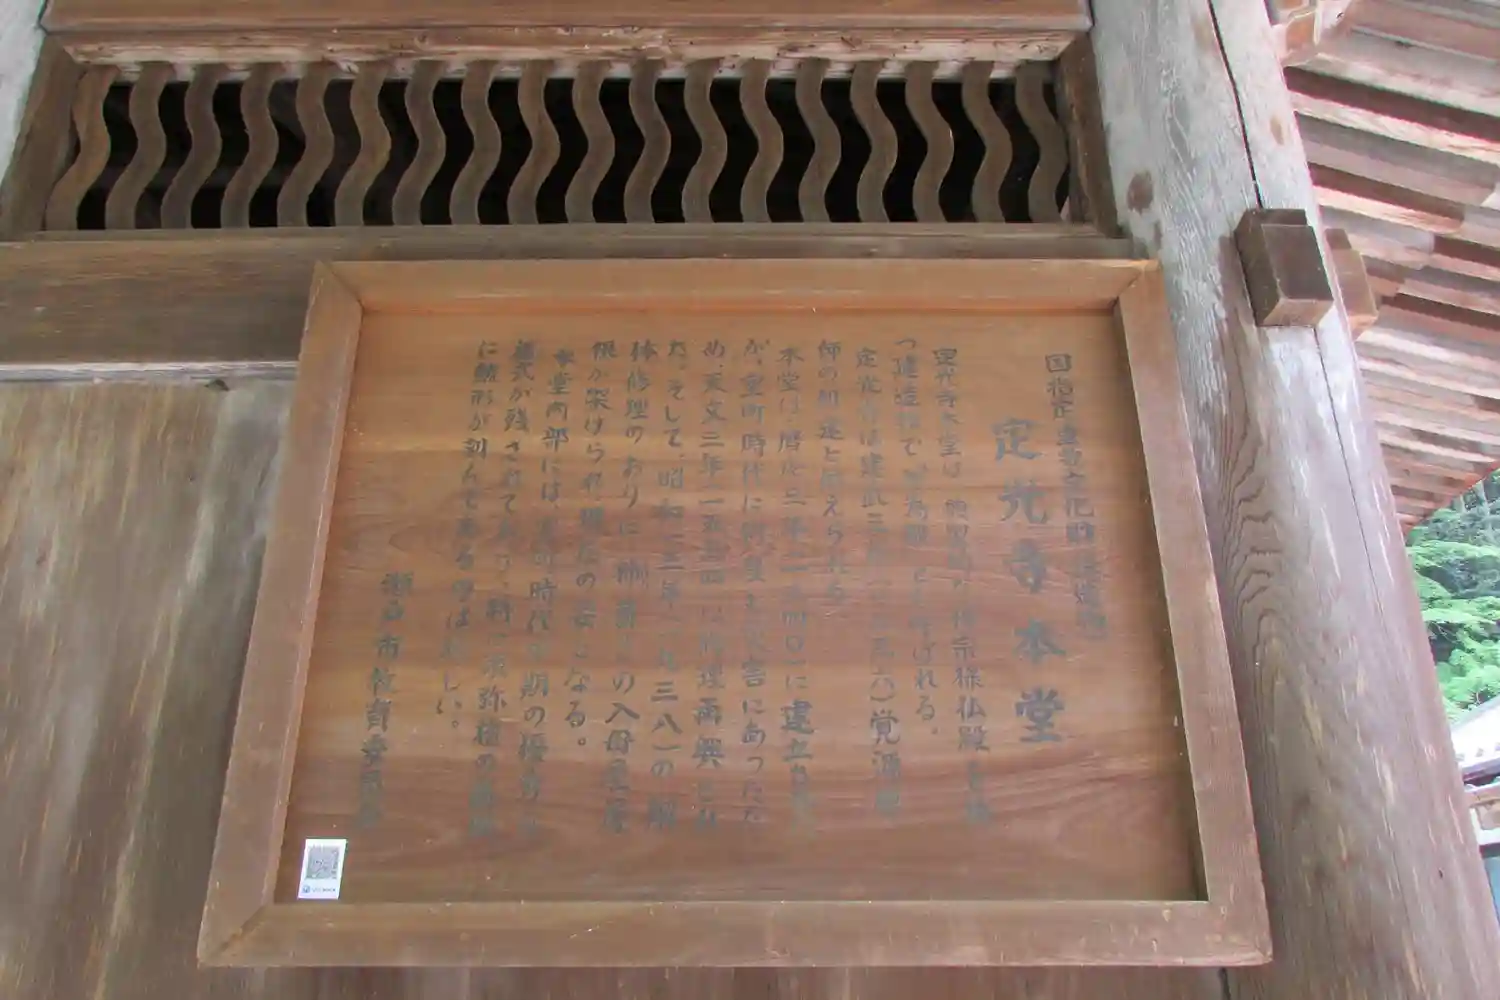 国指定重要文化財(建造物)
定光寺本堂
定光寺本堂は、 禅宗様仏殿
つ建造物で、 と呼ばれる。
定光寺は建武三年(一三三六)覚源禅
師の創建と伝えられる。
本堂は暦応三年(一三四〇)に建立され
が、室町時代に 災害にあったた
め、天文三年(一五三四)に修理再興され
た。そして、昭和十三年(一九三八)の解
体修理のおりに、 の入母屋屋
根が架けられ現在の姿になる。
本堂内部には、室町時代 期の優秀な
様式が残されており、特に須弥壇の
に鯱形が刻んであるのは珍しい。
瀬戸市教育委員会